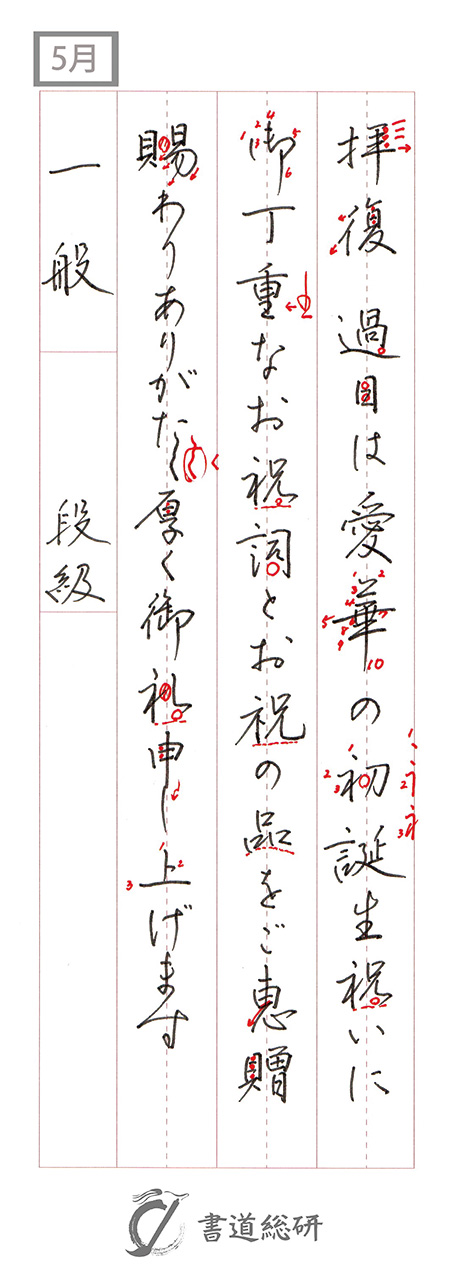 5月
拝復 過日は愛華の初誕生祝いに
御丁重なお祝詞とお祝の品をご恵贈
賜わりありがたく厚く御礼申し上げます
一般 段級
書道総研